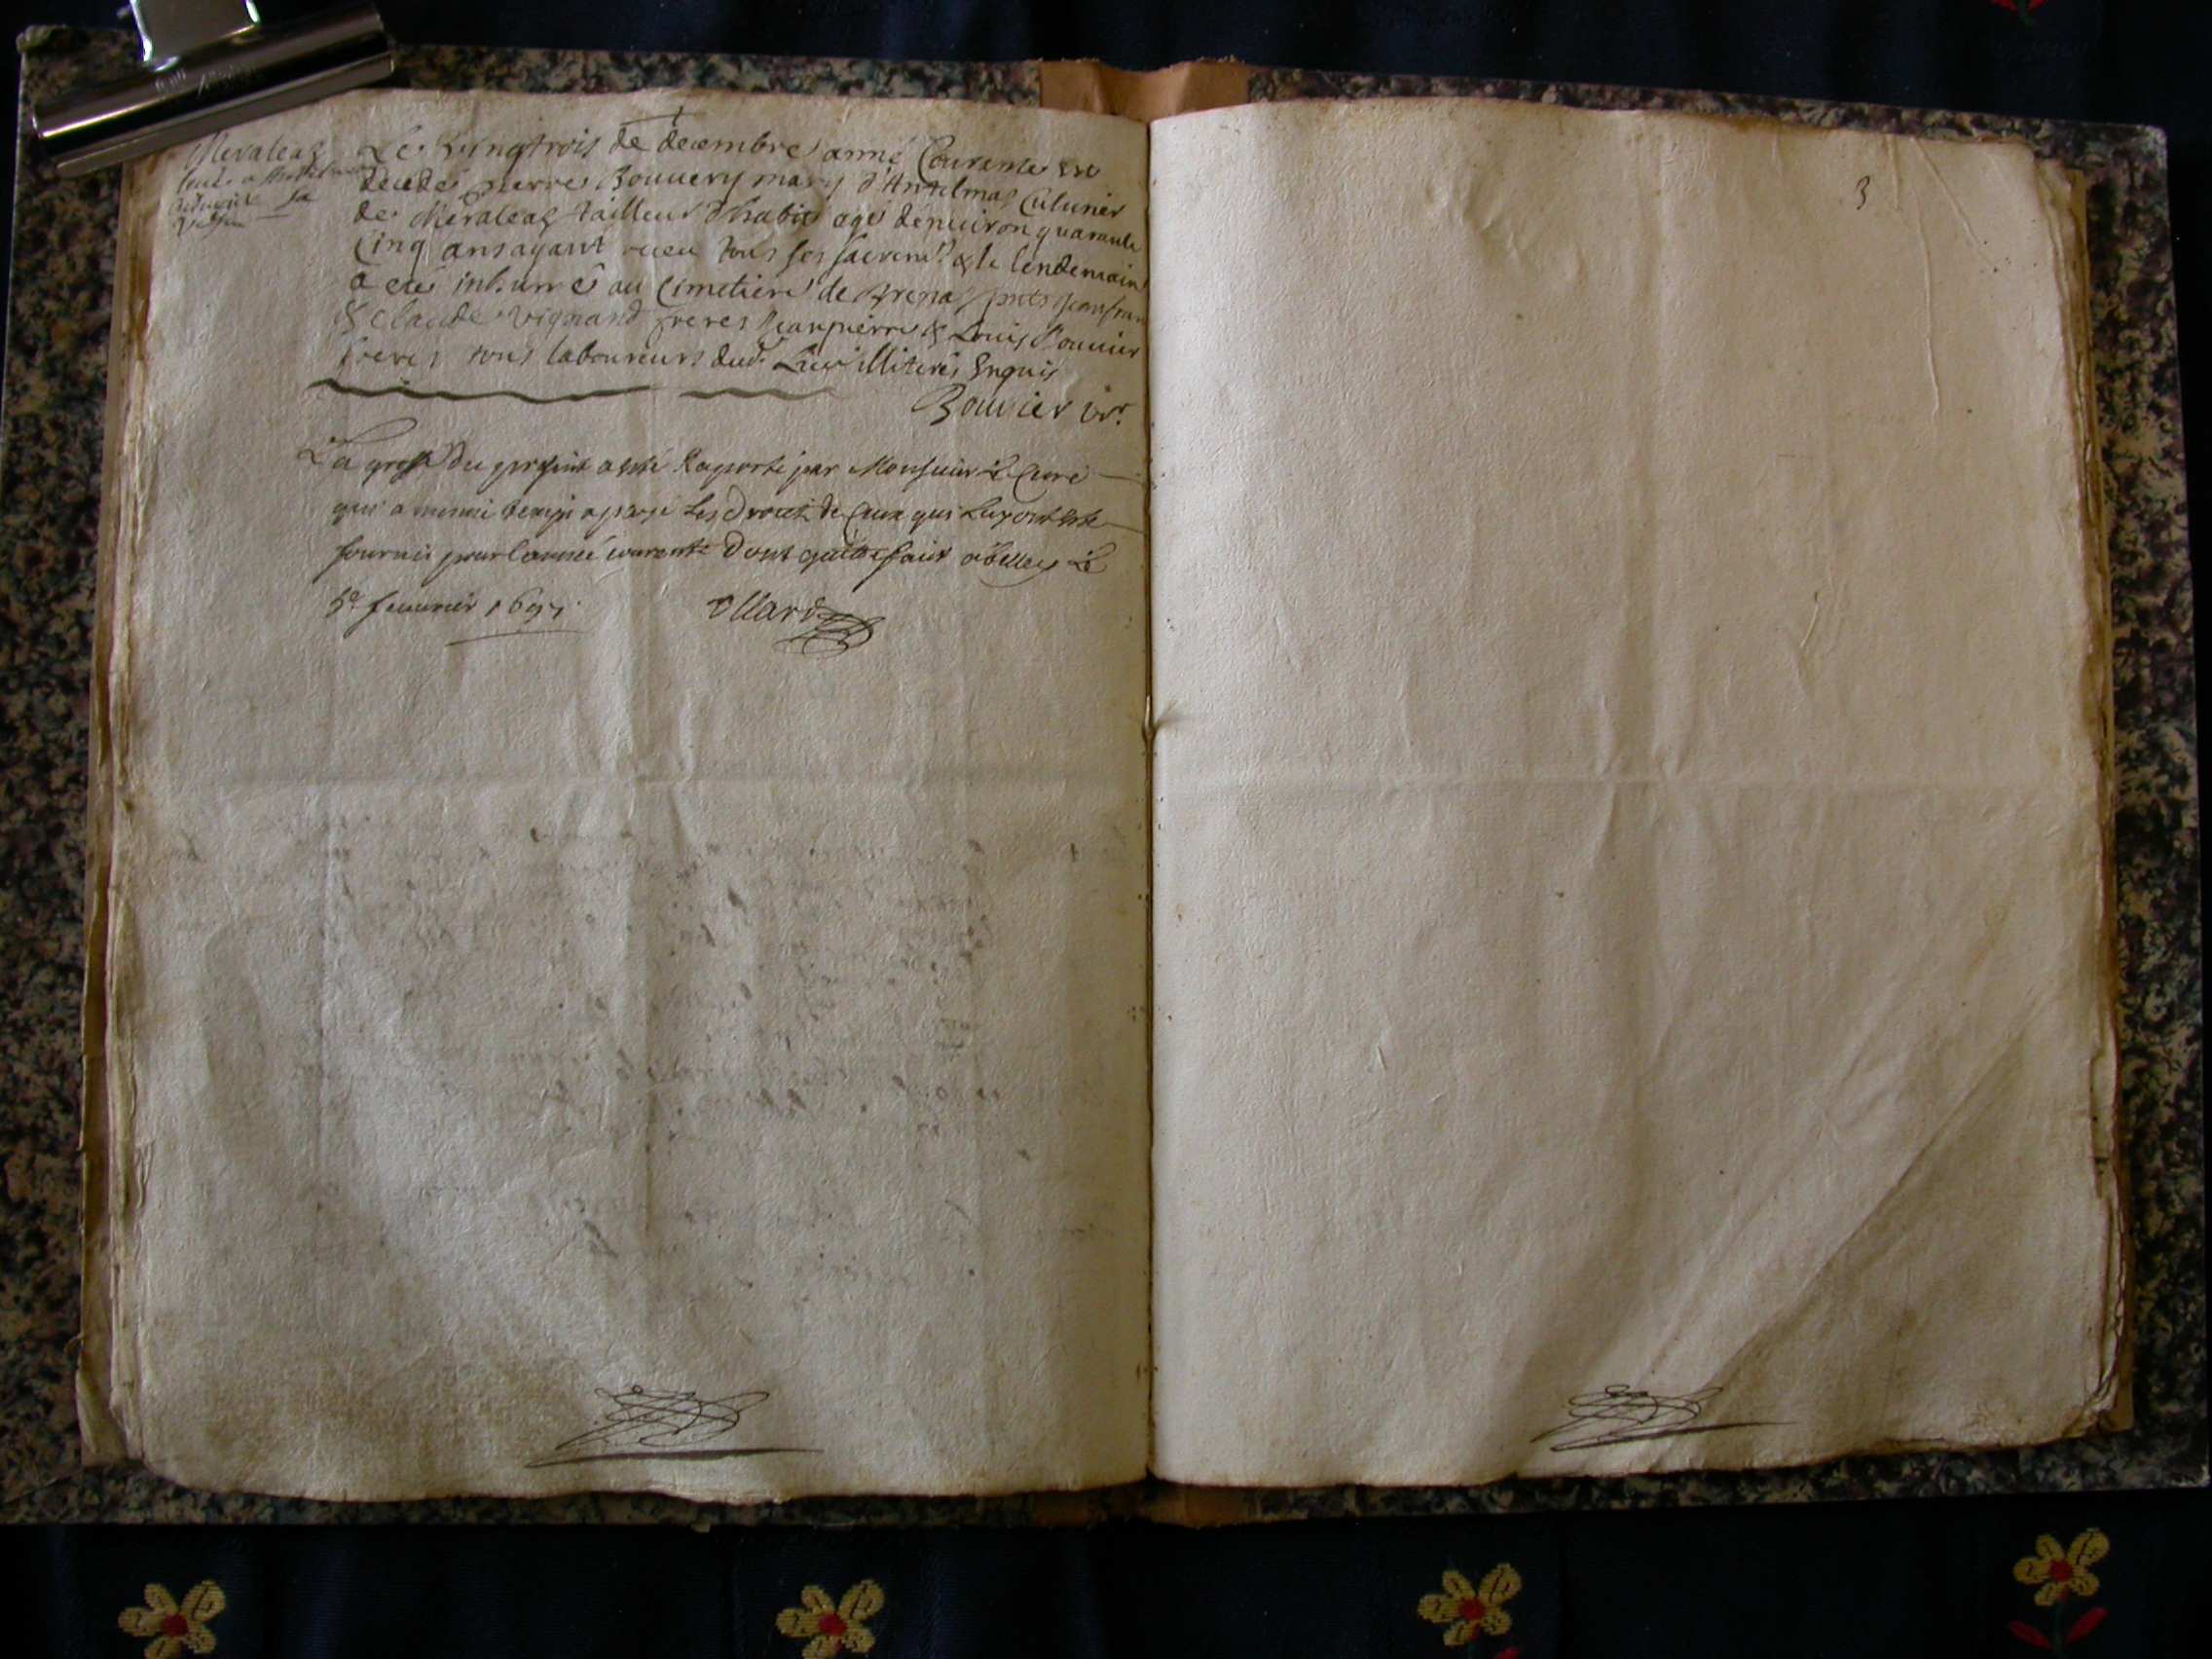 Meraleaz
Le vingtrois de decembre année Courante est
decedé pierre Bouuery mary d'Antelma Culunier
de Meraleaz tailleur d'habits agé denuiron quarante
Cinq ans ayant receu tous ses sacremts & le lendemain
a eté inhumé au Cimetiere de Brena pnts Jean fran
& claude vignand freres Jean pierre & Louis Bouuier
freres tous laboureurs dud. Lieu illiterés Enquis
Bouvier vre.
La grosse du present a esté Raporté par Monsieur Le Curé
qui a mesme temps a payé Les droict de Ceux qui Luy ont esté
fournis pour l'année courante Dont quitte faict à belley Le
5e feuurier 1697
Ollard
3